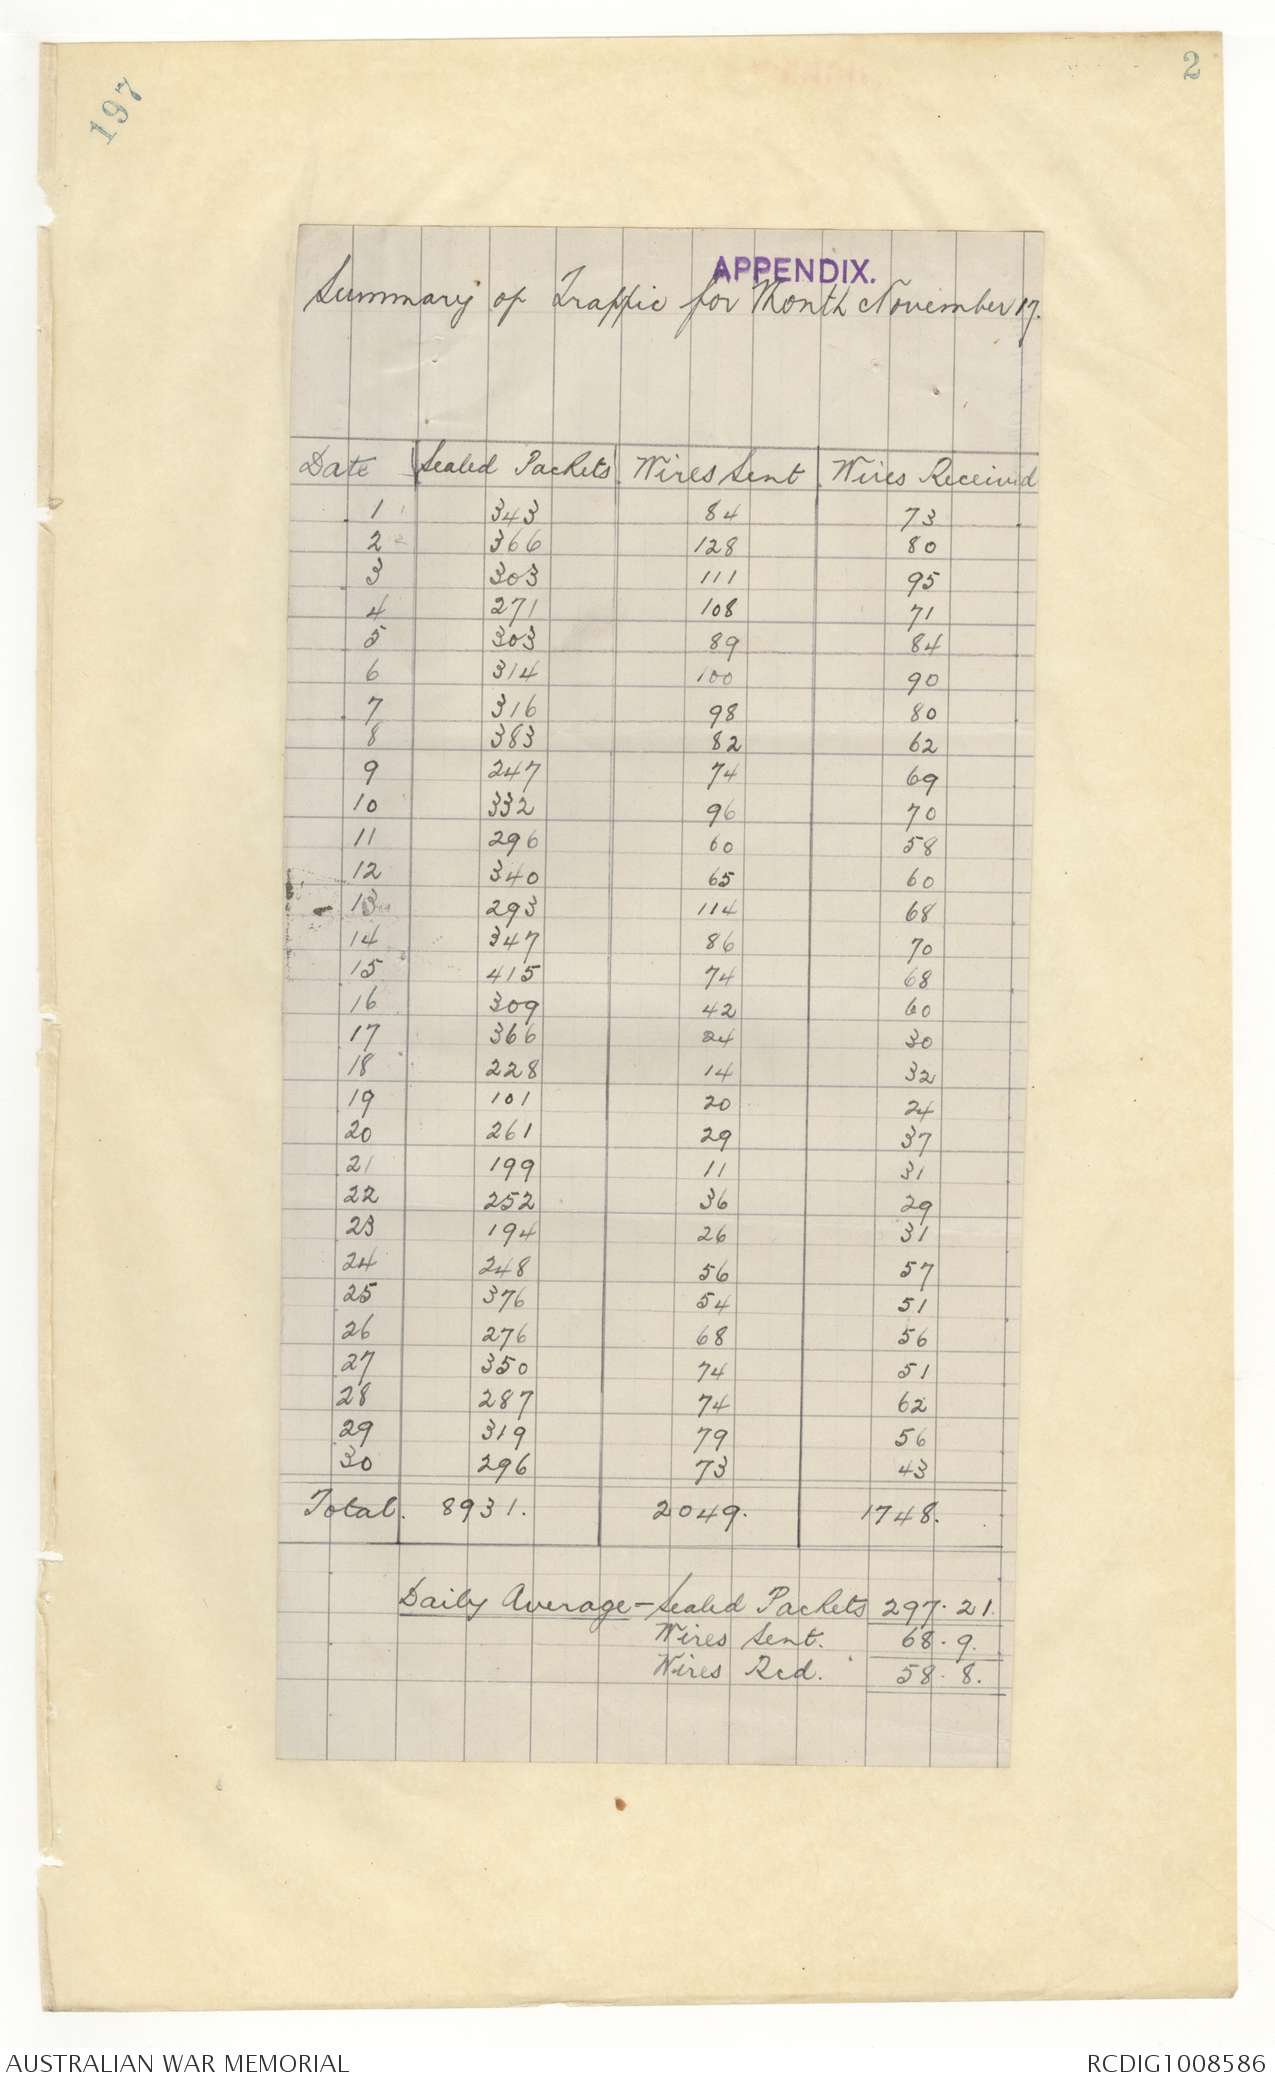 197
2
APPENDIX.
Summary of Traffic for Month November 17.
Date Sealed Packets Wires Sent Wires Received
1 343 84 73
2 366 128 80
3 303 111 95
4 271 108 71
5 303 89 84
6 314 100 90
7 316 98 80
8 383 82 62
9 247 74 69
10 332 96 70
11 296 60 58
12 340 65 60
13 293 114 68
14 347 86 70
15 415 74 68
16 309 42 60
17 366 24 30
18 228 14 32
19 101 20 24
20 261 29 37
21 199 11 31
22 252 36 29
23 194 26 31
24 248 56 57
25 376 54 51
26 276 68 56
27 350 74 51
28 287 74 62
29 319 79 56
30 296 73 43
Total. 8931. 2049. 1748.
Daily Average - Sealed Packets 297.21.
Wires Sent. 68.9.
Wires Rcd. 58.8.
AUSTRALIAN WAR MEMORIAL
RCDIG1008586